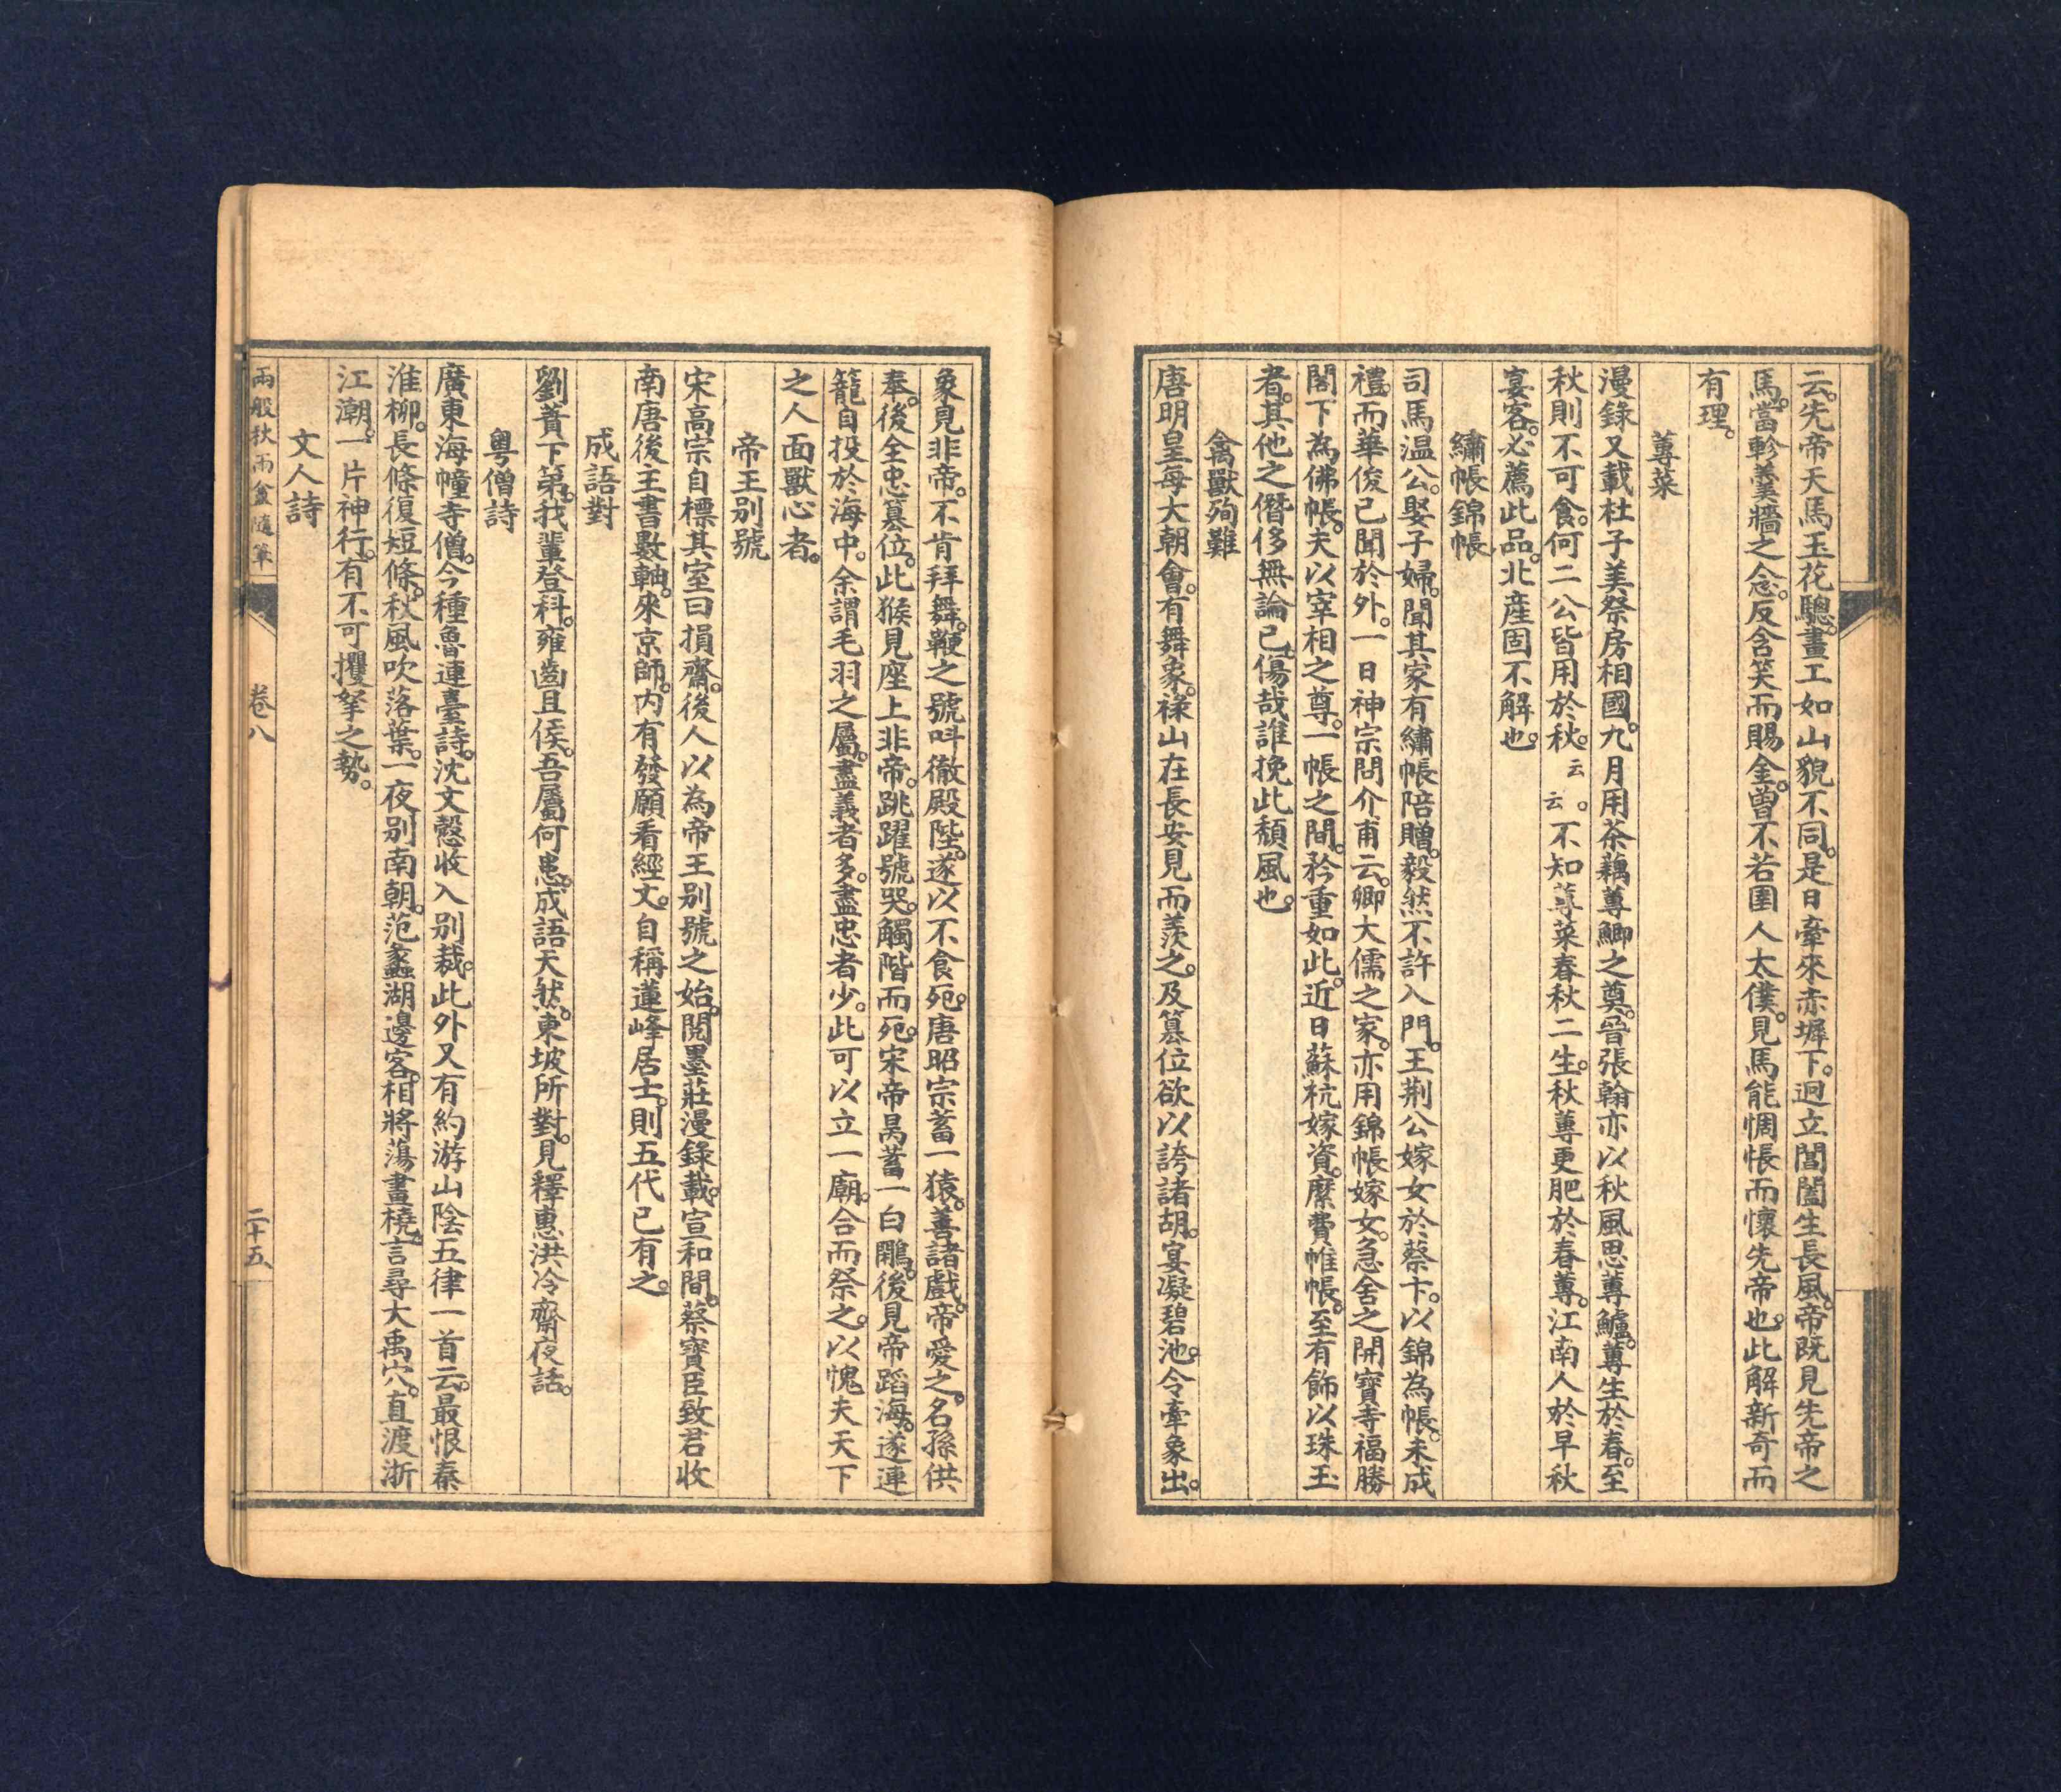 云。先帝天馬玉花驄。畫工如山貌不同。是日牽來赤墀下。迥立閶闔生長風。帝既見先帝之
馬。當軫羹牆之念。反含笑而賜金。曾不若圉人太僕。見馬能惆悵而懷先帝也。此解新奇而
有理。
蓴菜
漫錄又載杜子美祭房相國。九月用茶藕蓴鯽之奠。晉張翰亦以秋風思蓴鱸。蓴生於春。至
秋則不可食。何二公皆用於秋。云云。不知蓴菜春秋二生。秋蓴更肥於春蓴。江南人於早秋
宴客。必薦此品。北産固不解也。
繡帳錦帳
司馬温公。娶子婦。聞其家有繡帳陪贈。毅然不許入門。王荆公嫁女於蔡卞。以錦為帳。未成
禮。而華俊已聞於外。一日神宗問介甫云。卿大儒之家。亦用錦帳嫁女。急舍之開寶寺福勝
閣下為佛帳。夫以宰相之尊。一帳之間。矜重如此。近日蘇杭嫁資。縻費帷帳。至有飾以珠玉
者。其他之僭侈無論已。傷哉誰挽此頽風也。
禽獸殉難
唐明皇每大朝會。有舞象。祿山在長安見而羨之。及篡位欲以誇諸胡。宴凝碧池。令牽象出。
象見非帝。不肯拜舞。鞭之號叫徹殿陛。遂以不食死。唐昭宗蓄一猿。善諸戲。帝愛之。名孫供
奉。後全忠篡位。此猴見座上非帝。跳躍號哭。觸階而死。宋帝昺蓄一白鷴。後見帝蹈海。遂連
籠自投於海中。余謂毛羽之屬。盡義者多。盡忠者少。此可以立一廟。合而祭之。以愧夫天下
之人面獸心者。
帝王别號
宋高宗自標其室曰損齋。後人以為帝王别號之始。閲墨莊漫錄載。宣和間。蔡寶臣致君收
南唐後主書數軸。來京師。内有發願看經文。自稱蓮峰居士。則五代已有之。
成語對
劉蕡下第。我輩登科。雍齒且侯。吾屬何患。成語天然。東坡所對。見釋惠洪冷齋夜話。
粤僧詩
廣東海幢寺僧。今種魯連臺詩。沈文慤收入别裁。此外又有約游山陰五律一首云。最恨秦
淮柳。長條復短條。秋風吹落葉。一夜别南朝。范蠡湖邊客。相將蕩畫橈。言尋大禹穴。直渡浙
江潮。一片神行。有不可攫拏之勢。
文人詩
兩般秋雨盦隨筆 卷八 二十五